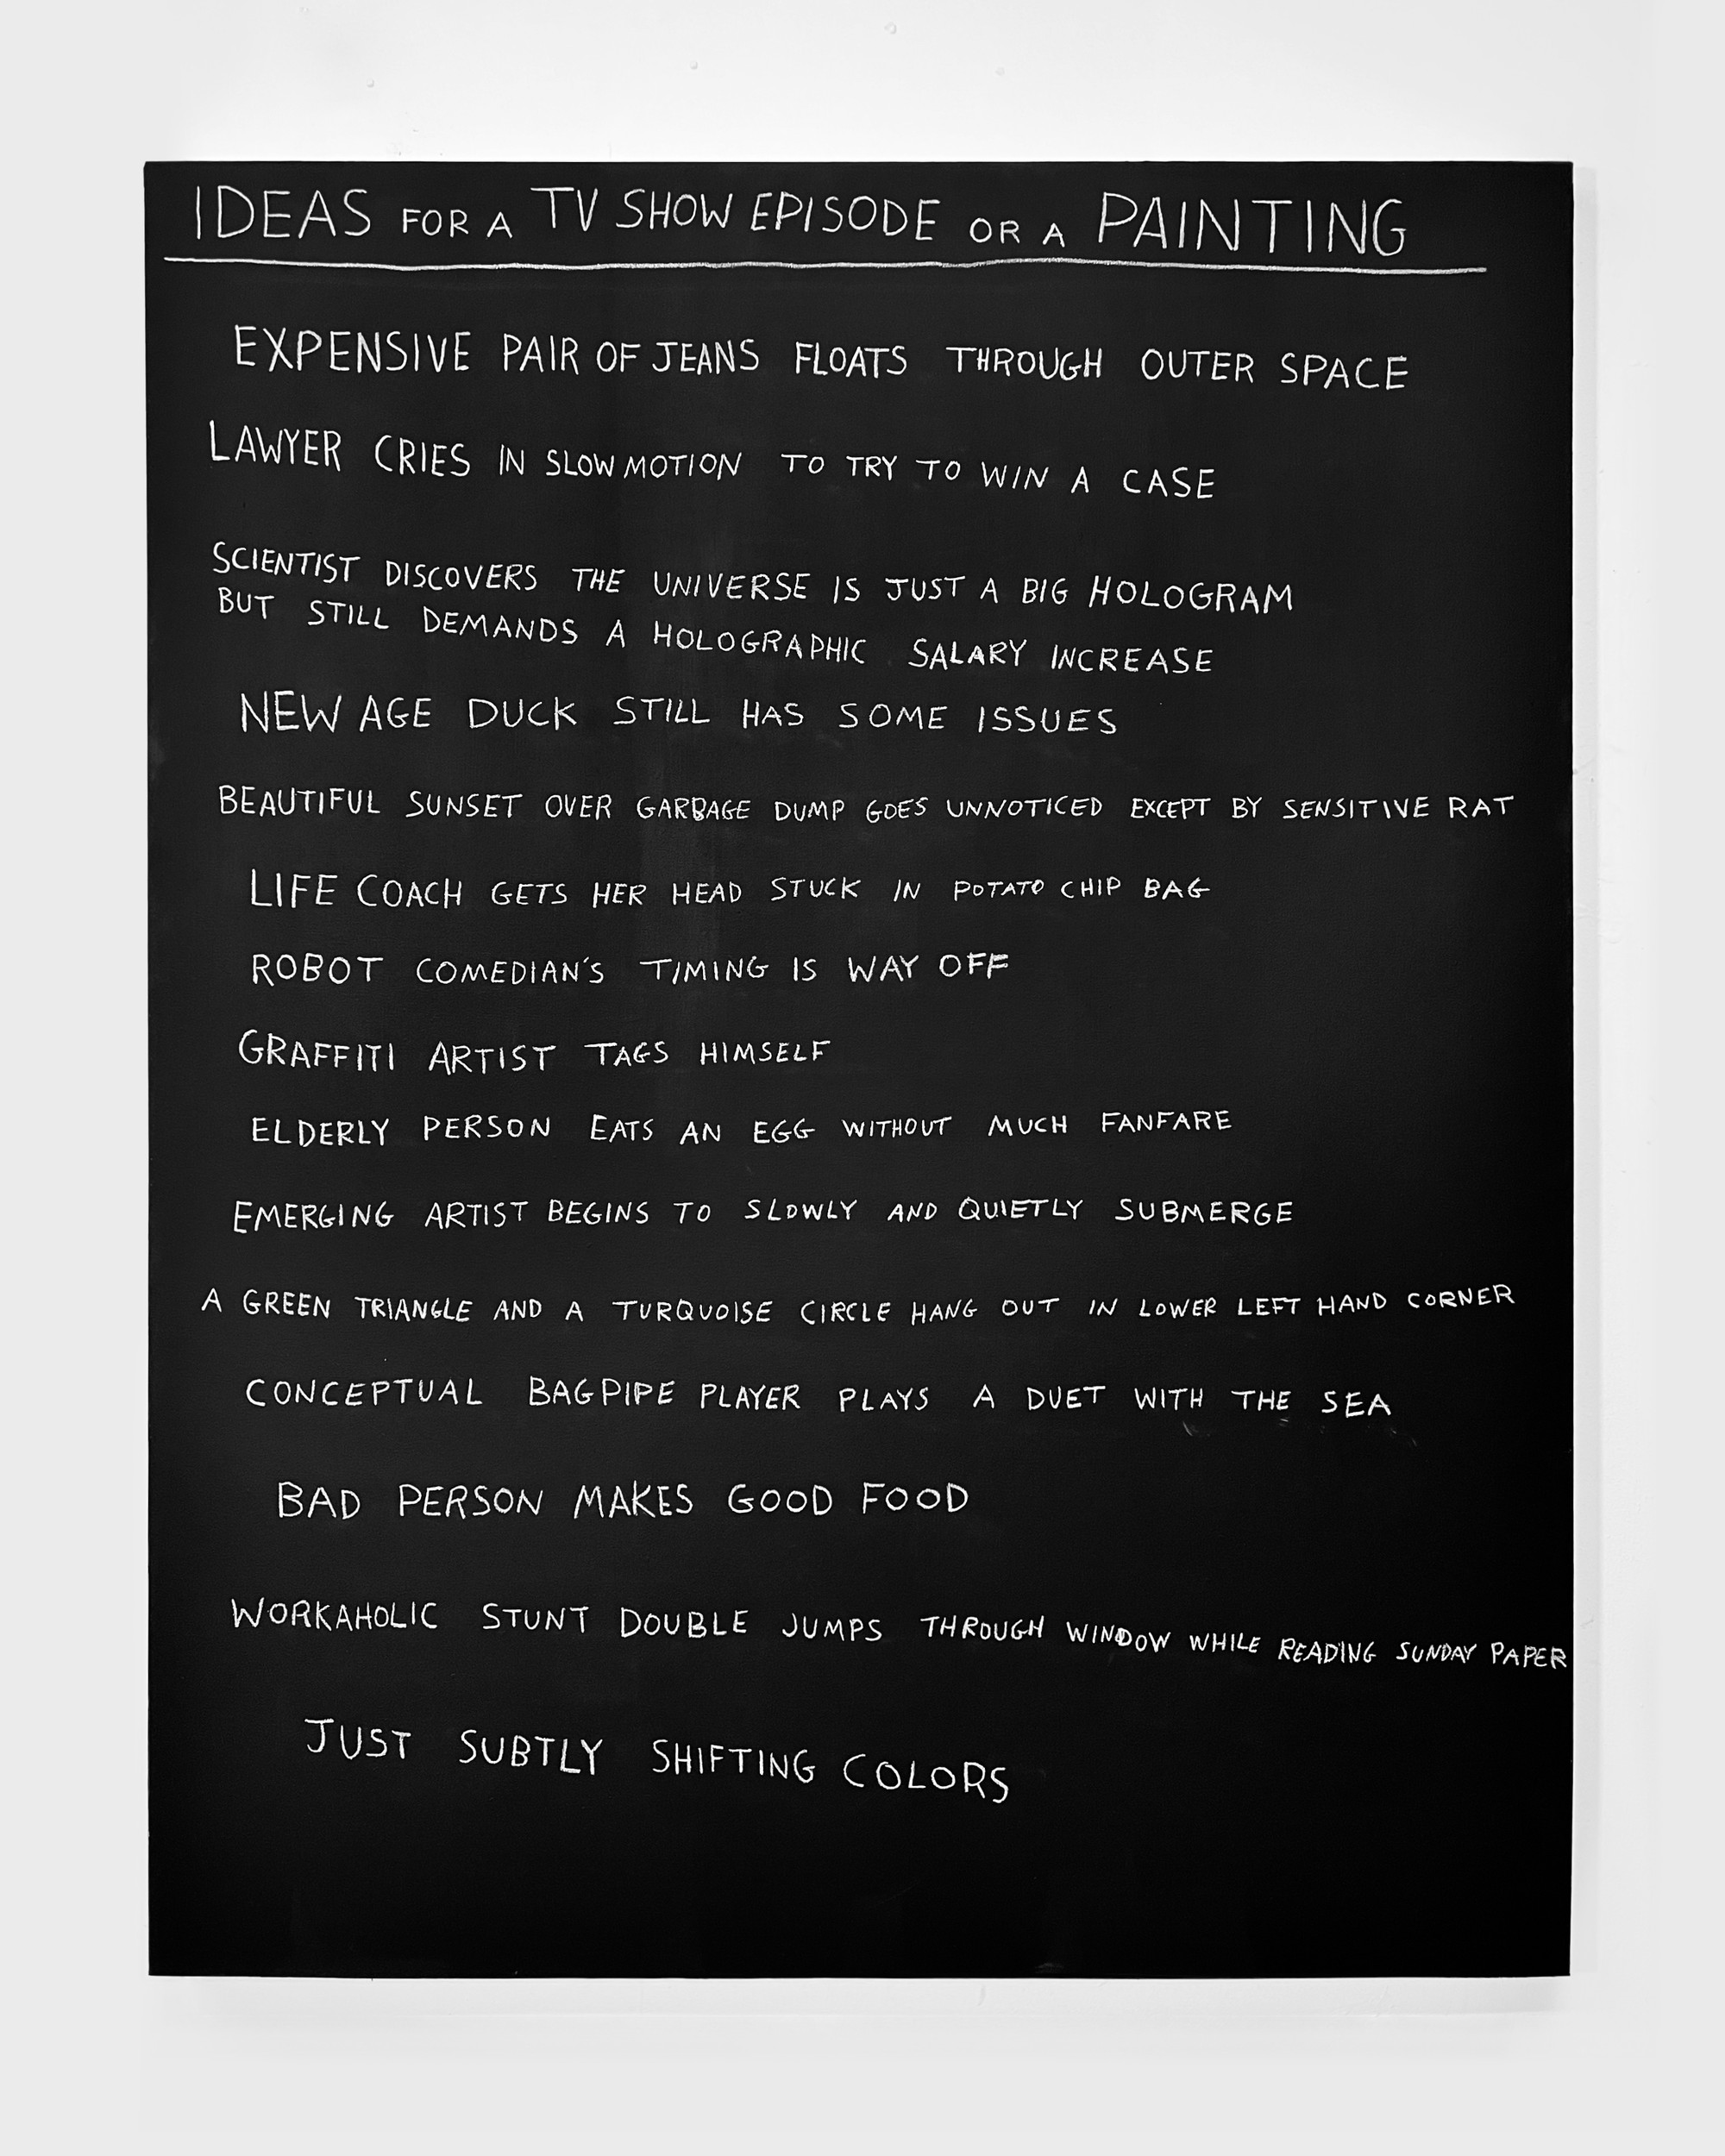 IDEAS FOR A TV SHOW EPISODE OR A PAINTING
EXPENSIVE PAIR OF JEANS FLOATS THROUGH OUTER SPACE
LAWYER CRIES IN SLOW MOTION TO TRY TO WIN A CASE
SCIENTIST DISCOVERS THE UNIVERSE IS JUST A BIG HOLOGRAM
BUT STILL DEMANDS A HOLOGRAPHIC SALARY INCREASE
NEW AGE DUCK STILL HAS SOME ISSUES
BEAUTIFUL SUNSET OVER GARBAGE DUMP GOES UNNOTICED EXCEPT BY SENSITIVE RAT
LIFE COACH GETS HER HEAD STUCK IN POTATO CHIP BAG
ROBOT COMEDIAN'S TIMING IS WAY OFF
GRAFFITI ARTIST TAGS HIMSELF
ELDERLY PERSON EATS AN EGG WITHOUT MUCH FANFARE
EMERGING ARTIST BEGINS TO SLOWLY AND QUIETLY SUBMERGE
A GREEN TRIANGLE AND A TURQUOISE CIRCLE HANG OUT IN LOWER LEFT HAND CORNER
CONCEPTUAL BAGPIPE PLAYER PLAYS A DUET WITH THE SEA
BAD PERSON MAKES GOOD FOOD
WORKAHOLIC STUNT DOUBLE JUMPS THROUGH WINDOW WHILE READING SUNDAY PAPER
JUST SUBTLY SHIFTING COLORS